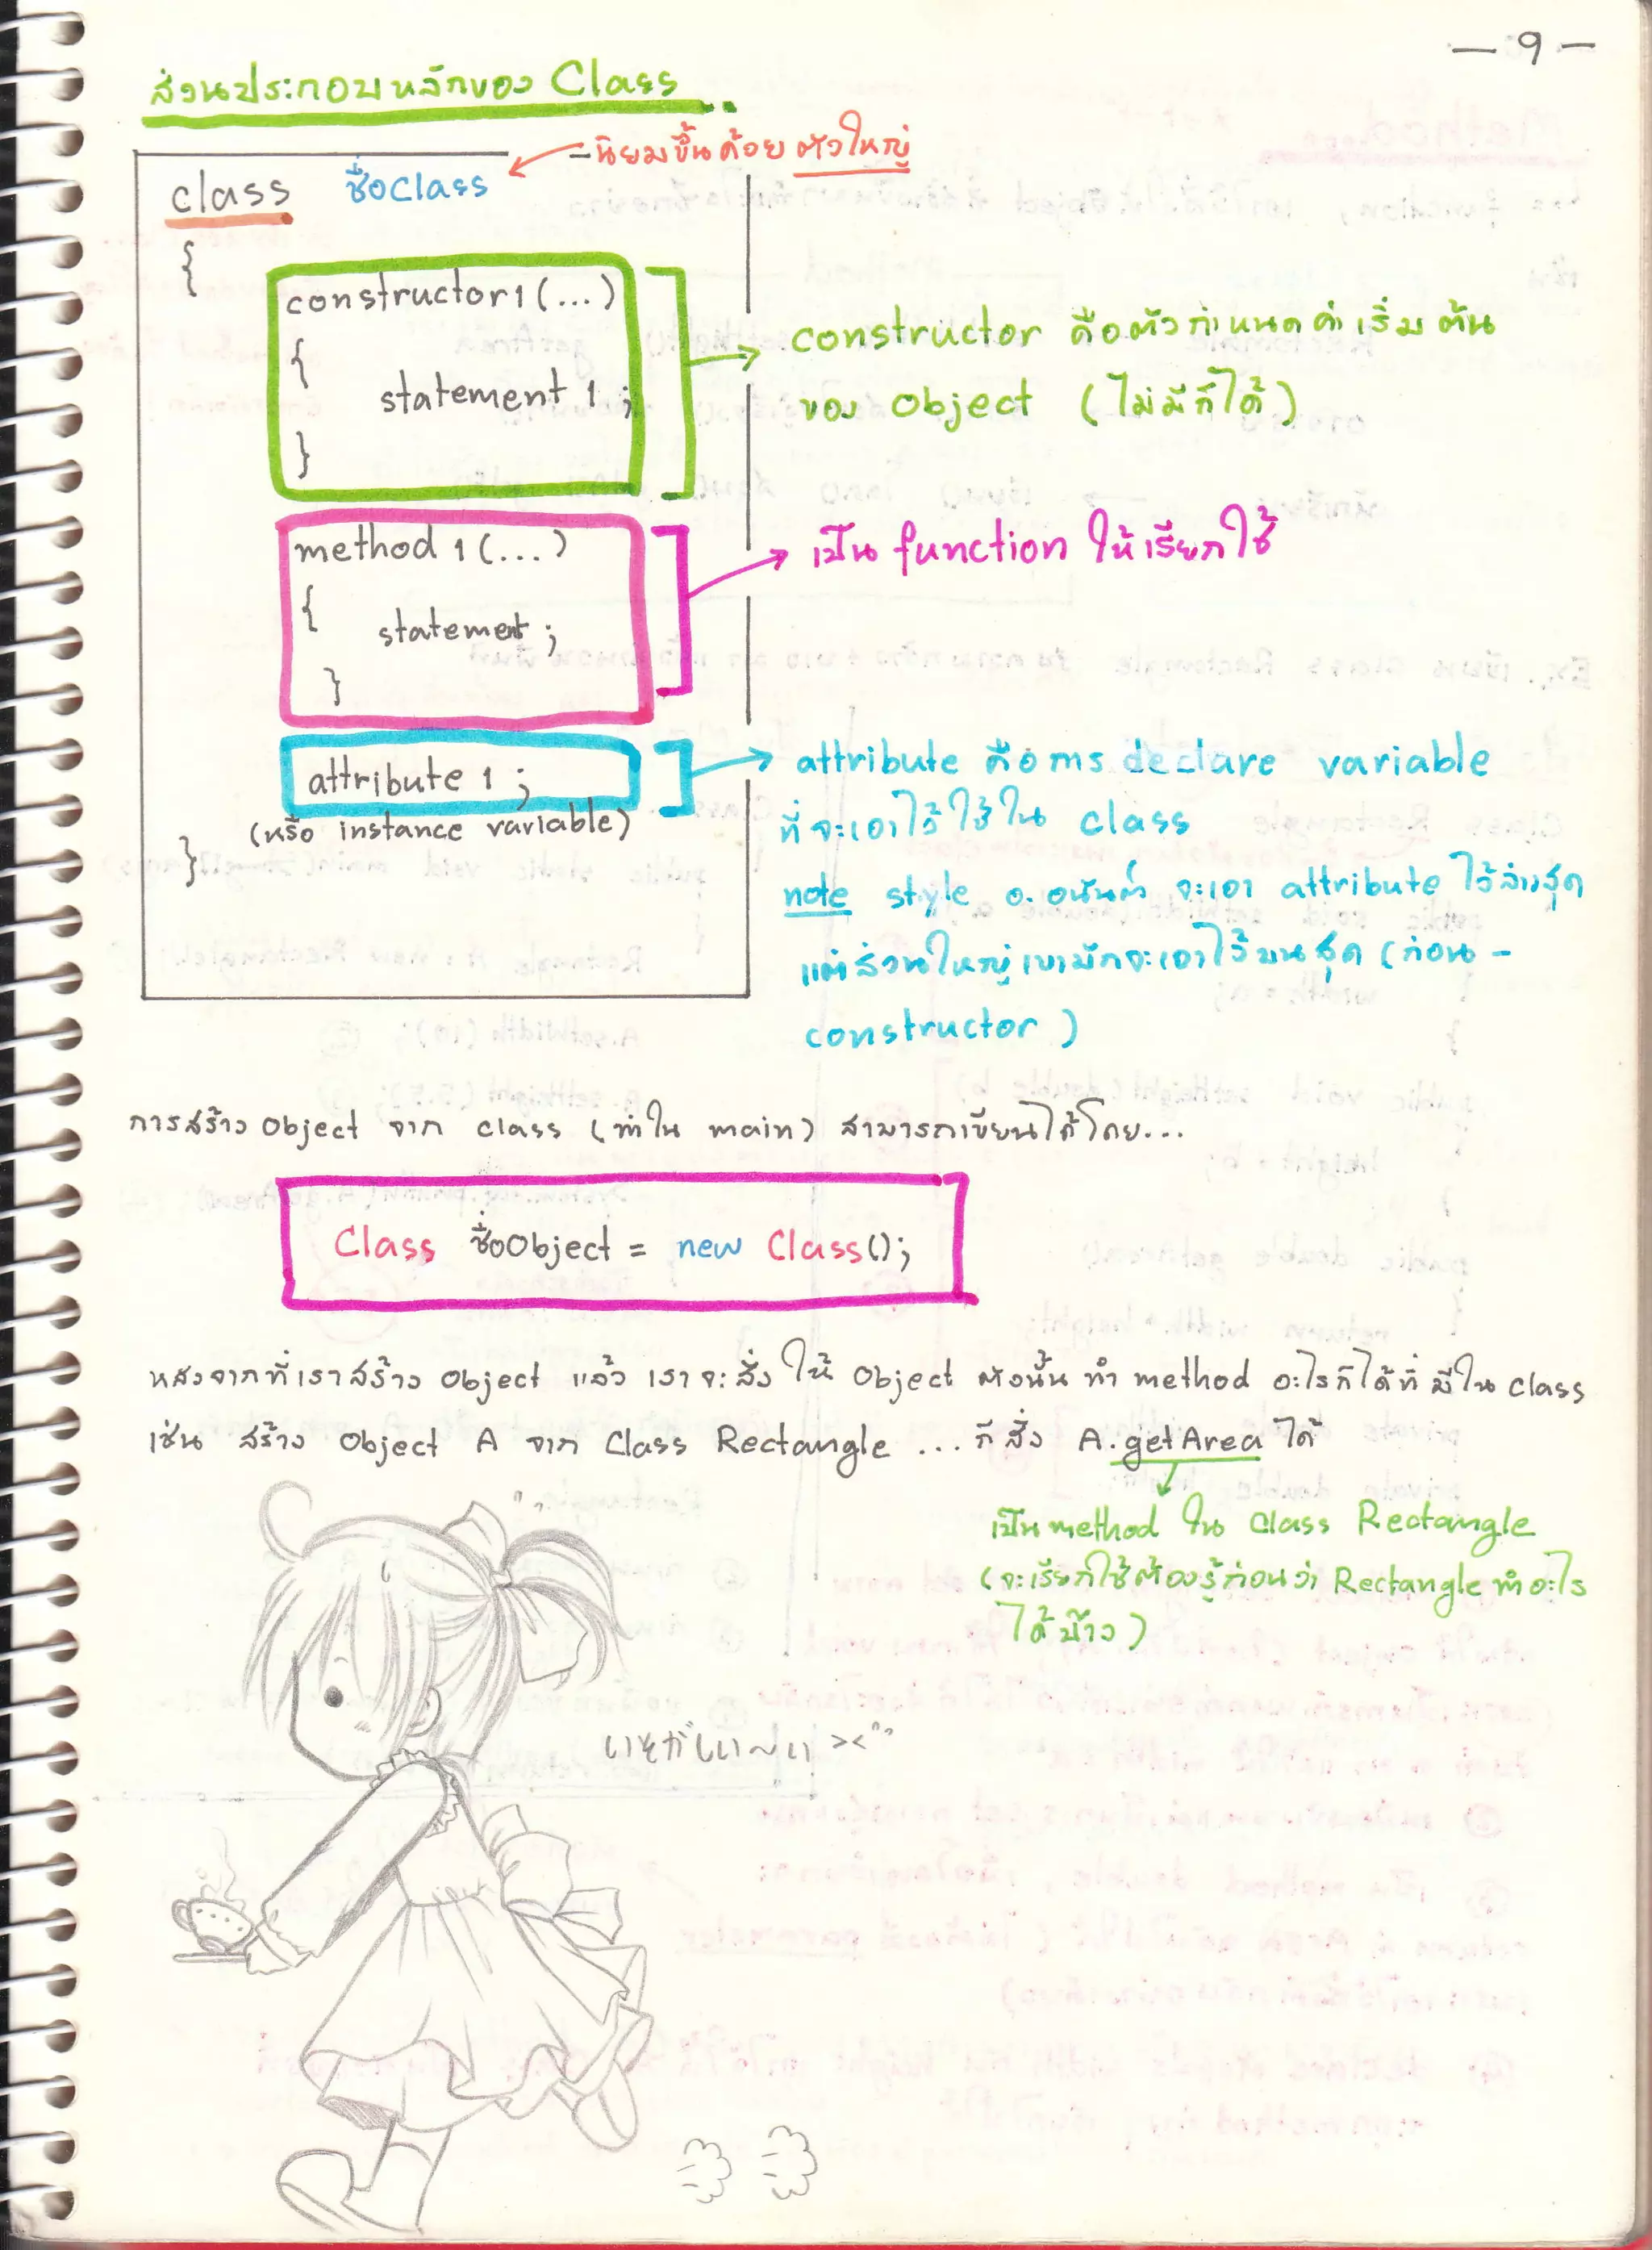 - 9 -
ส่วนประกอบหลักของ Class
- นิยมขึ้นด้วย ตัวใหญ่
class ชื่อClass
{
constructor1 (...)
{
statement 1 ;
}
constructor คือตัวกำหนดค่าเริ่มต้น
ของ Object (ไม่มีก็ได้)
method 1 (...)
{
statement ;
}
เป็น function ให้เรียกใช้
attribute 1 ;
(หรือ instance variable)
}
attribute คือการ declare variable
ที่จะเอาไว้ใช้ใน class
note style อ.อนันต์ จะเอา attribute ไว้ล่างสุด
แต่ส่วนใหญ่เขามักจะเอาไว้บนสุด (ก่อน -
constructor )
การสร้าง Object จาก class (ทำใน main) สามารถเขียนได้โดย...
Class ชื่อObject = new Class();
หลังจากที่เราสร้าง Object แล้ว เราจะสั่งให้ Object ตัวนั้น ทำ method อะไรก็ได้ที่มีใน Class
เช่น สร้าง Object A จาก Class Rectangle ... ก็สั่ง A.getArea ได้
เป็น method ใน Class Rectangle
(จะเรียกใช้ต้องรู้ก่อนว่า Rectangle ทำอะไร
ได้บ้าง )
><"